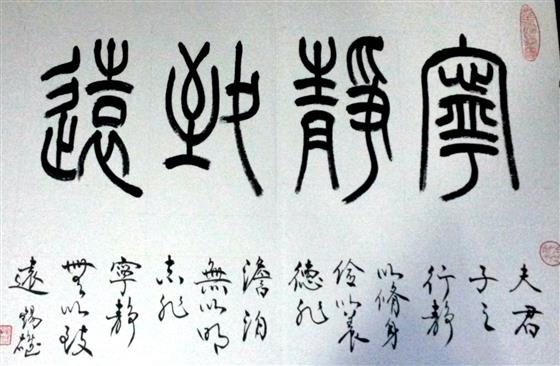 寧靜致遠
夫君
子之
行靜
以脩身
儉以養
德非
澹泊
無以明
志非
寧靜
無以致
遠